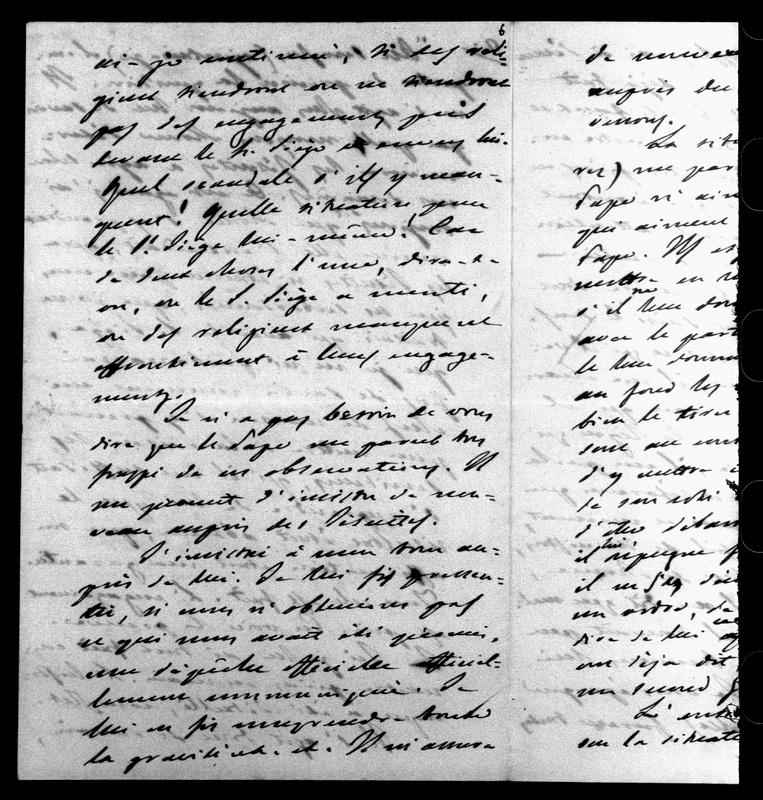 6
ai-je continué, si des reli-
gieux tiendront ou ne tiendront
pas des engagements pris
devant le St. Siège et envers lui.
Quel scandale s'ils y man-
quent! Quelle situation pour
le St. Siège lui-même! Car
de deux choses l'une, dira-t-
on, ou le St. Siège a menti,
ou des religieux manquent
effrontément à leurs engage-
ments.
Je n'ai pas besoin de vous
dire que le Pape me parut très
frappé de ces observations. Il
me promit d'insister de nou-
veau auprès des Jésuites.
J'insistai à mon tour au-
près de lui. Je lui fis pressen-
tir, si nous n'obtenions pas
ce qui nous avait été promis,
une dépêche officielle officiel-
lement communiquée. Je
lui en fis comprendre toute
la gravité etc. etc. Il m'assura
de nouveau
auprès du
verrons.
La situ
me par
Pape
qui aiment
Pape. Il est
mettre en
s'il ne leur don
avec le part
le leur donn
au fond les
bien le tire
sont au cou
d'y mettre
de son côté
d'être débar
il lui répugne
il ne
un ordre, de
dire de lui
on déjà dit
un second
L'ent
sur la situat